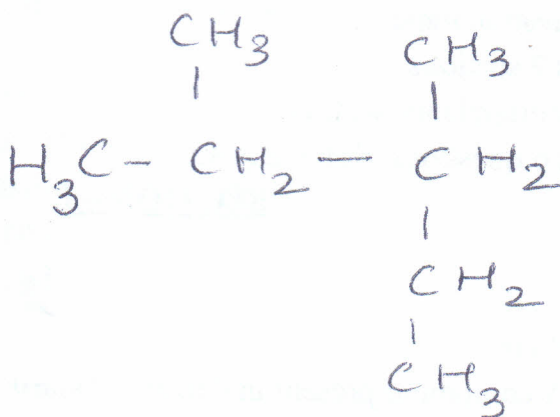 CH3 CH3
H3C - CH2 - CH2
CH2
CH3